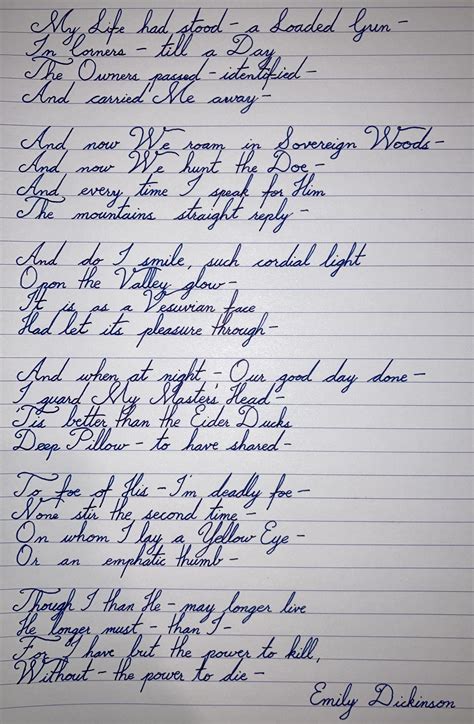 My Life had stood – a Loaded Gun –
In Corners – till a Day
The Owners passed – identified –
And carried Me away –
And now We roam in Sovereign Woods –
And now We hunt the Doe –
And every time I speak for Him
The mountains straight reply –
And do I smile, such cordial light
Opon the Valley glow –
It is as a Vesuvian face
Had let its pleasure through –
And when at night – Our good day done –
I guard My Master's Head –
'Tis better than the Eider Ducks
Deep Pillow – to have shared –
To foe of His – I'm deadly foe –
None stir the second time –
On whom I lay a Yellow Eye –
Or an emphatic thumb –
Though I than He – may longer live
He longer must – than I –
For I have but the power to kill,
Without – the power to die –
Emily Dickinson